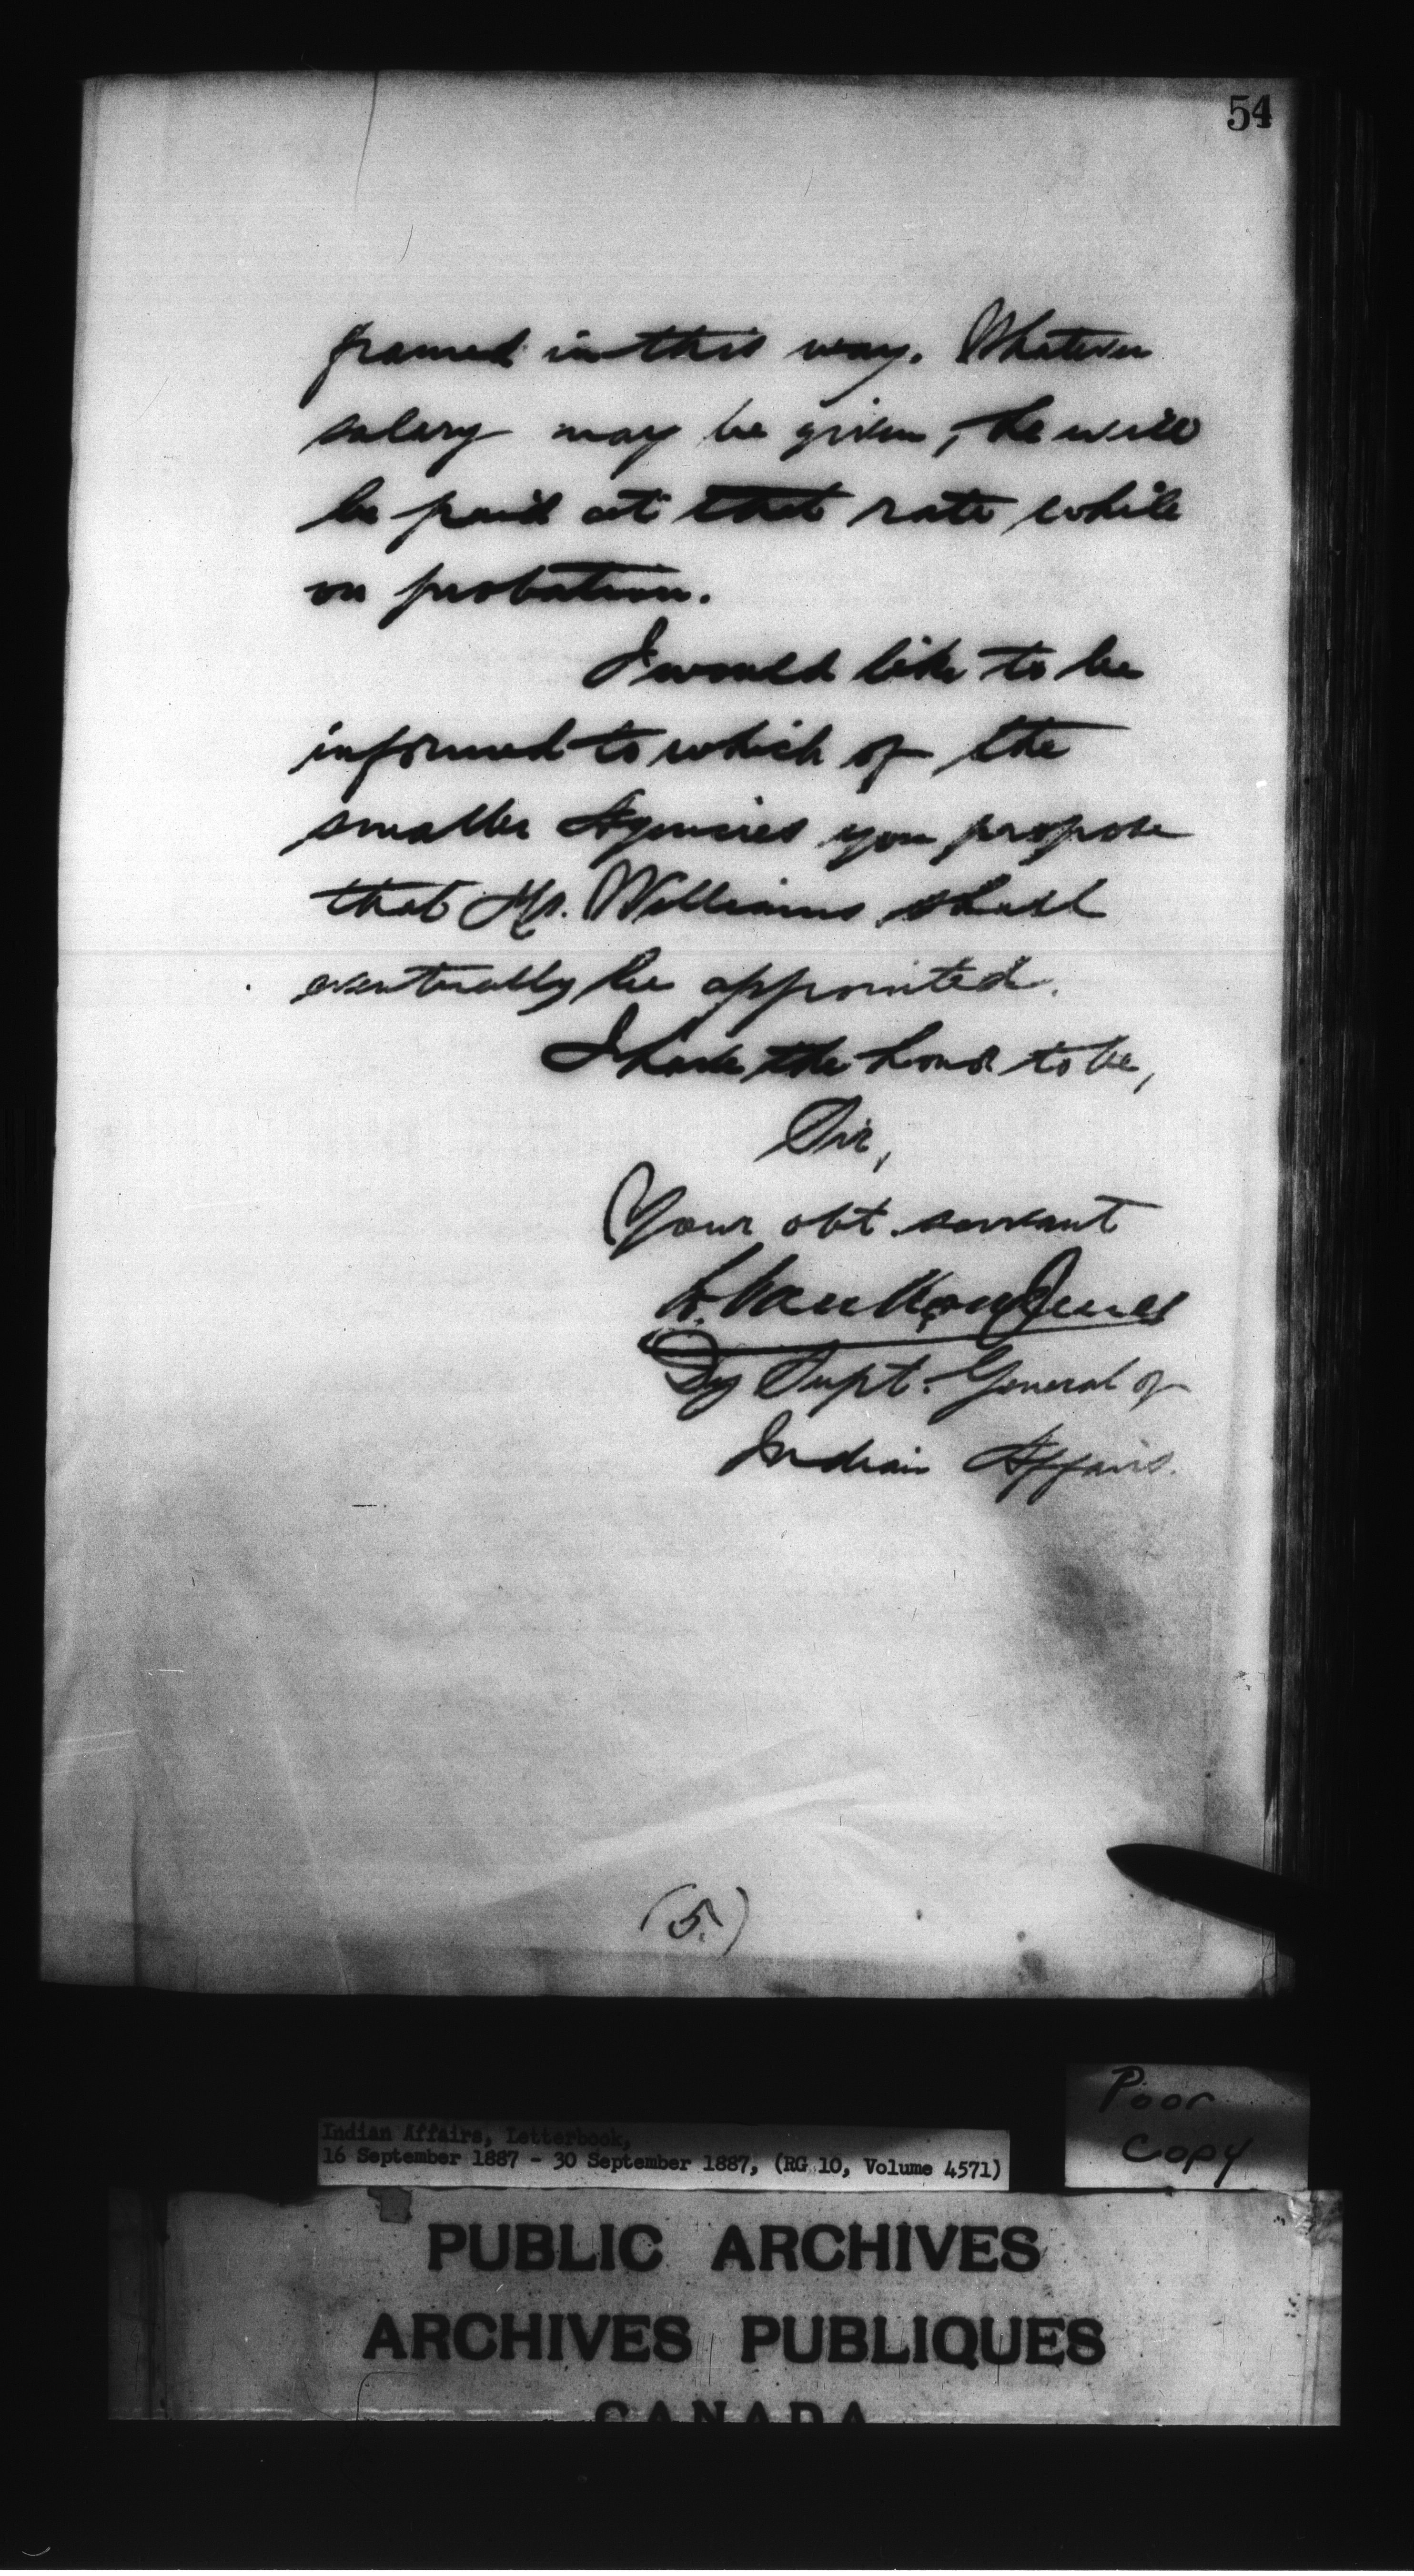 54
framed in this way. Whatever
salary may be given, he will
be paid at that rate while
on probation.
I would like to be
informed to which of the
smaller Agencies you propose
that Mr. Williams shall
eventually be appointed.
I have the honor to be,
Sir,
Your obt. servant
L. Vankoughnet
Dy Supt. General of
Indian Affairs.
(5.)
Poor
Copy
Indian Affairs, Letterbook,
16 September 1887 - 30 September 1887, (RG 10, Volume 4571)
PUBLIC ARCHIVES
ARCHIVES PUBLIQUES
CANADA